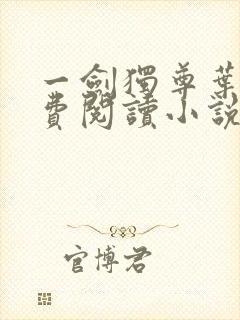 一劍獨尊葉
費閱讀小說
官博君